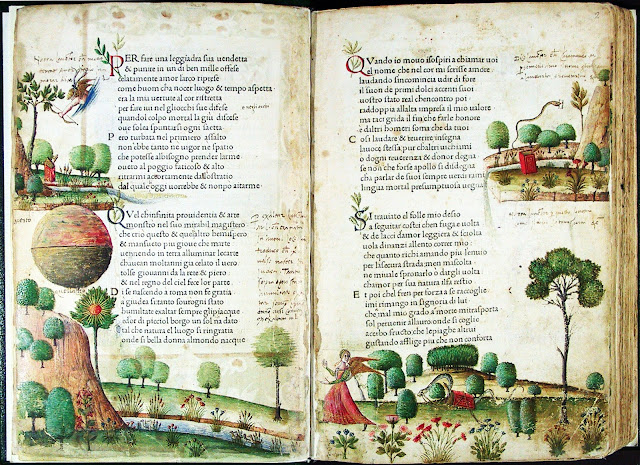 PER fare una leggiadra sua uendetta
& punire in un di ben mille offese
celatamente amor larco riprese
come huom cha nocer luogo & tempo aspetta
era la mia uertute al cor ristretta
per fare iui ne gliocchi sue difese
quando colpo mortal la giu discese
oue solea spuntarsi ogni saetta
Pero turbata nel primero assalto
non ebbe tanto ne uigor ne spatio
che potesse albisogno prender larme
o uero al poggio faticoso & alto
ritrarmi accortamente dallostratio
dal quale oggi uorrebbe & nonpo aitarme
QVel chinfinita prouidentia & arte
monstro nel suo mirabil magistero
che crio questo & quellaltro hemispero
& mansueto piu gioue che marte
uenendo in terra alluminar lecarte
chauean moltanni gia celato iluero
tolse giouanni da la rete & piero
& nel regno del ciel fece lor parte
Di se nascendo a roma non fe gratia
a giudea si tanto sourogni stato
humiltate exaltar sempre gli piacque
& or di picciol borgo un sol na dato
tal che natura el luogo si ringratia
onde si bella donna almondo nacque
QVando io mouo isospiri a chiamar uoi
el nome che nel cor mi scrisse amore
laudando sincomincia udir di fore
il suon de primi dolci accenti suoi
uostro stato real chencontro poi
raddoppia allalta impresa il mio ualore
ma taci grida il fin che farle honore
e daltri homeri soma che da tuoi
Cosi laudare & reuerire insegna
lauoce stessa pur chaltri uichiami
o dogni reuerenza & donor degna
se non che forse apollo si disdegna
cha parlar de suoi sempre uerdi rami
lingua mortal presumptuosa uegna
SI trauiato el folle mio desio
a seguitar costei chen fuga e uolta
& de lacci damor leggiera & sciolta
uola dinanzi allento correr mio
che quanto richiamando piu lenuio
per lasecura strada men mascolta
ne miuale spronarlo o dargli uolta
chamor per sua natura ilfa restio
E poi chel fren per forza a se raccoglie
imi rimango in signoria di lui
che mal mio grado a morte mitrasporta
sol per uenir allauro onde si coglie
acerbo fructo che lepiaghe altrui
gustando afflige piu che non conforta